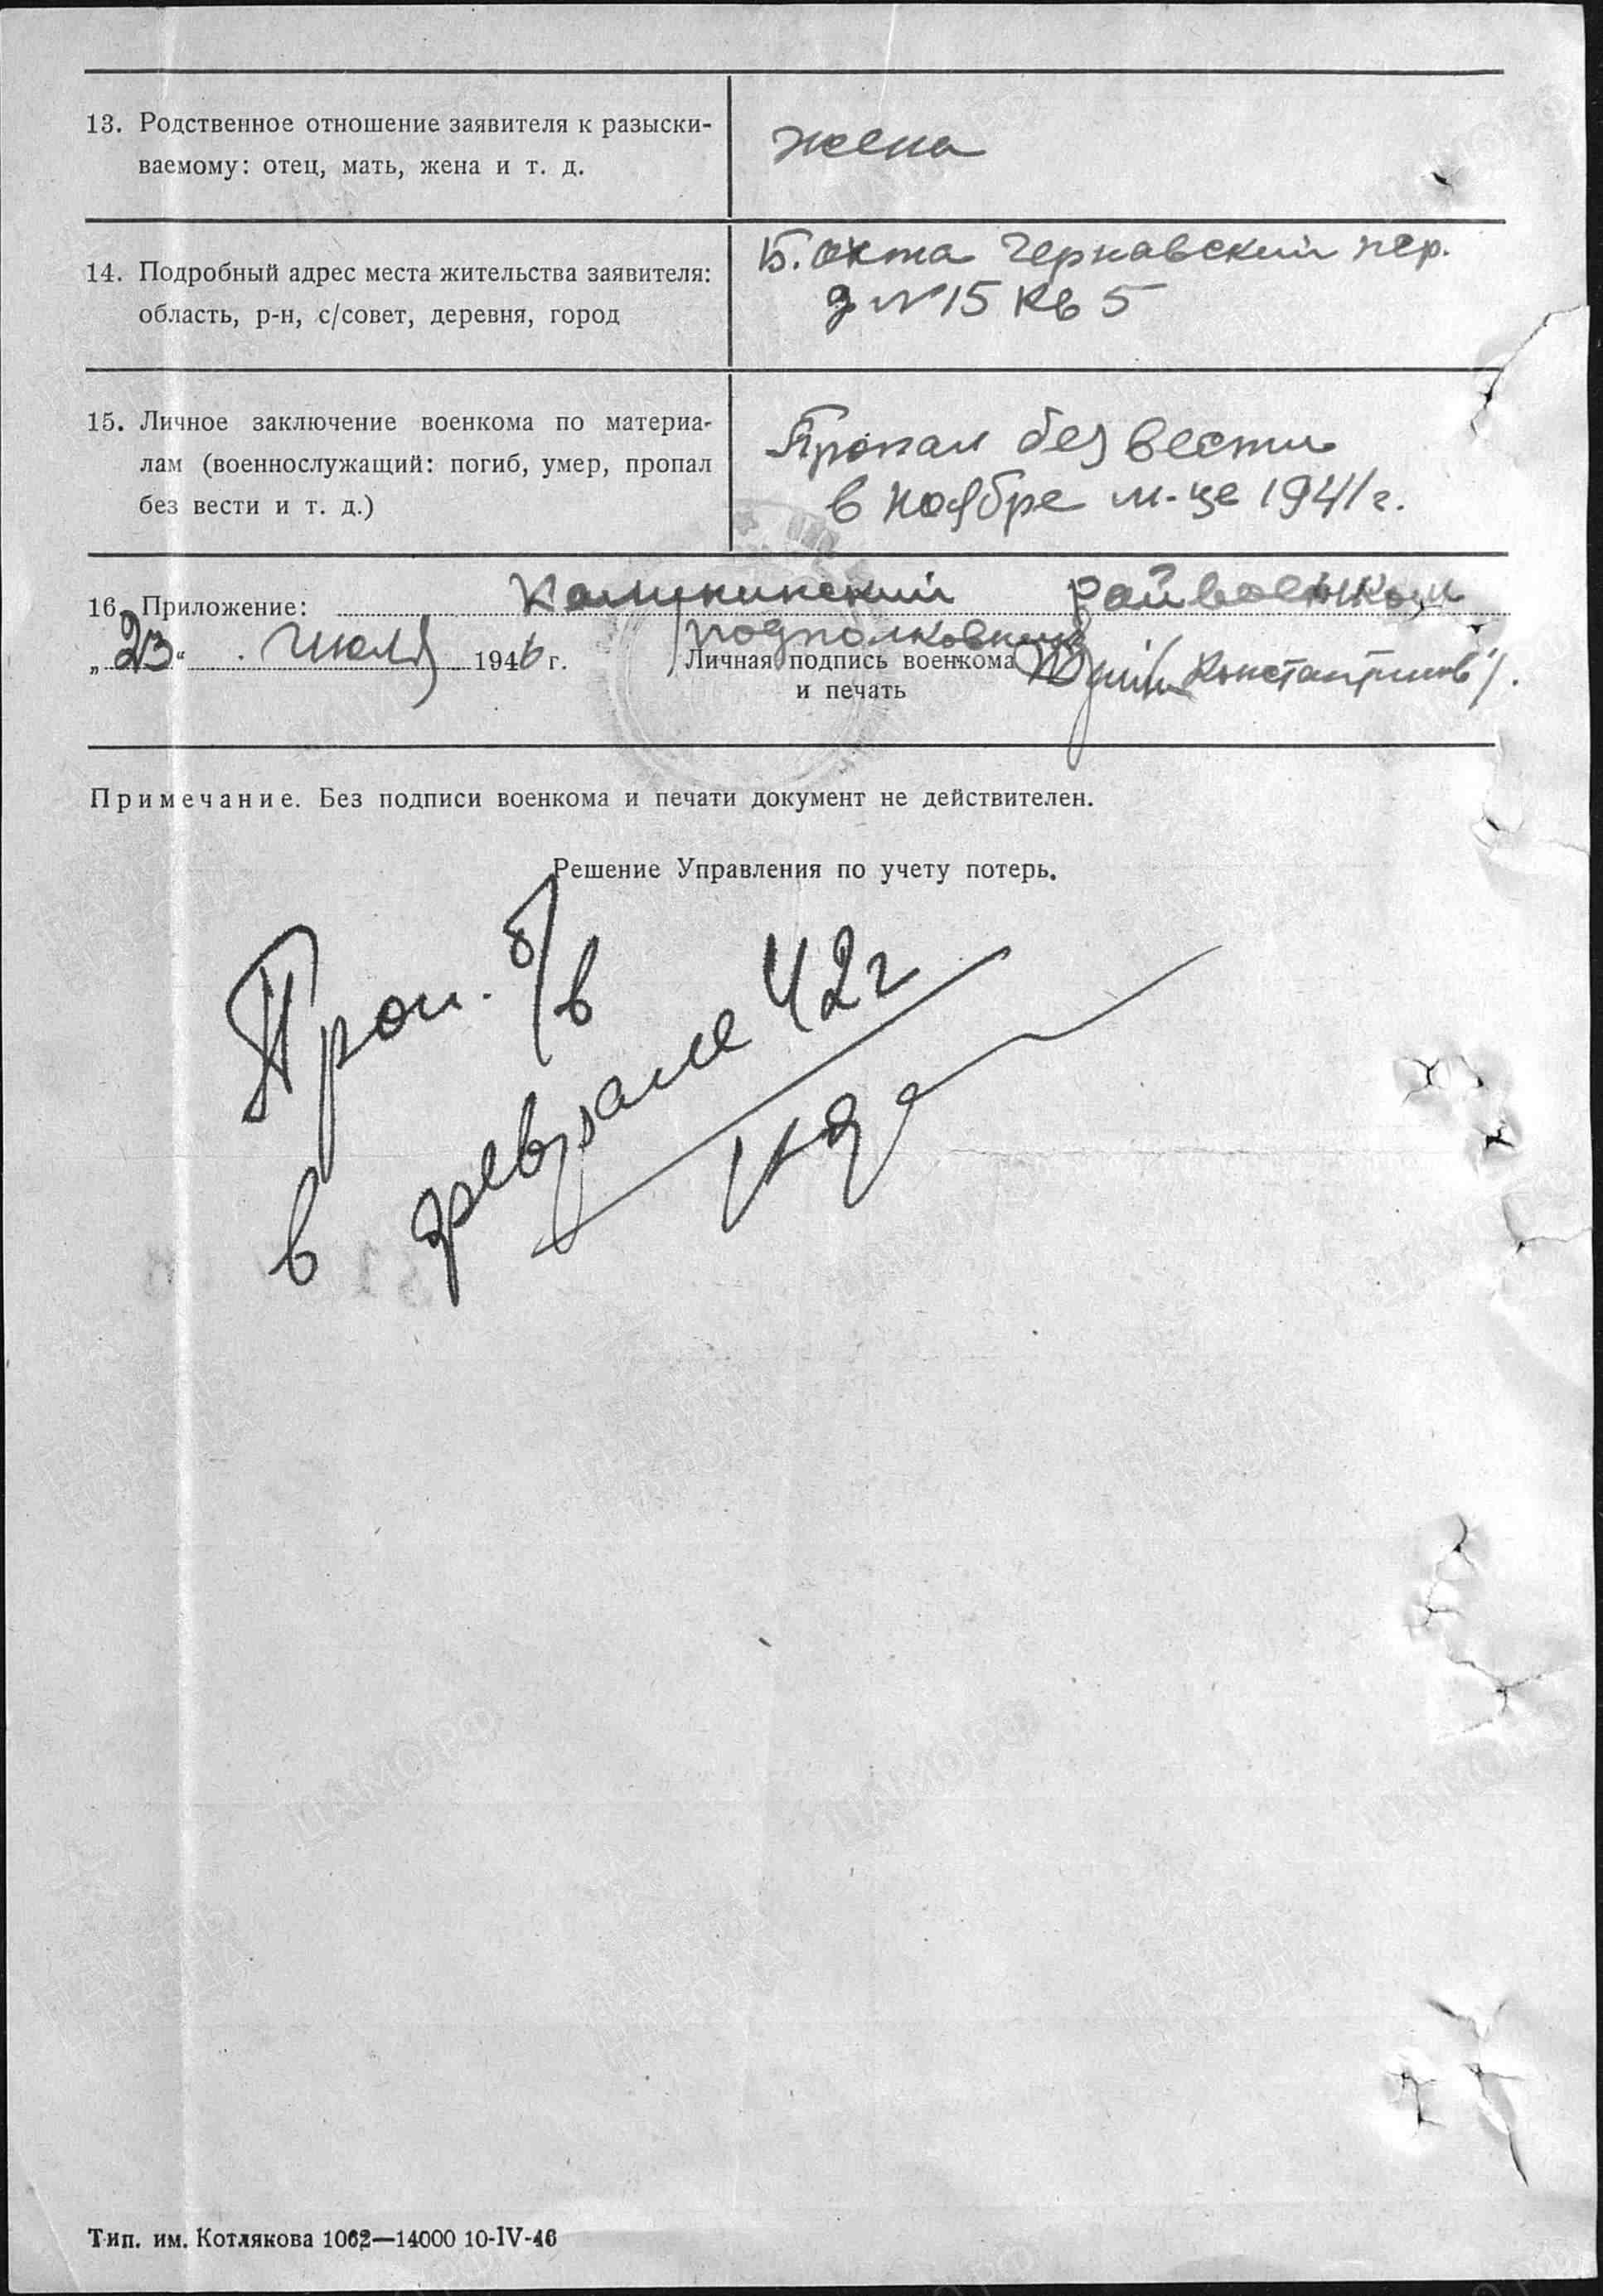 13. Родственное отношение заявителя к разыски-
ваемому: отец, мать, жена и т. д.
жена
14. Подробный адрес места жительства заявителя:
область, р-н, с/совет, деревня, город
Б. Охта Чернавский пер.
д № 15 кв 5
15. Личное заключение военкома по материа-
лам (военнослужащий: погиб, умер, пропал
без вести и т. д.)
Пропал без вести
в ноябре м-це 1941 г.
16. Приложение: Калининский Райвоенком
подполковник
„23“ июля 1946 г. Личная подпись военкома /Константинов/.
и печать
Примечание. Без подписи военкома и печати документ не действителен.
Решение Управления по учету потерь.
Проп. б/в
в феврале 42 г
Тип. им. Котлякова 1062—14000 10-IV-46